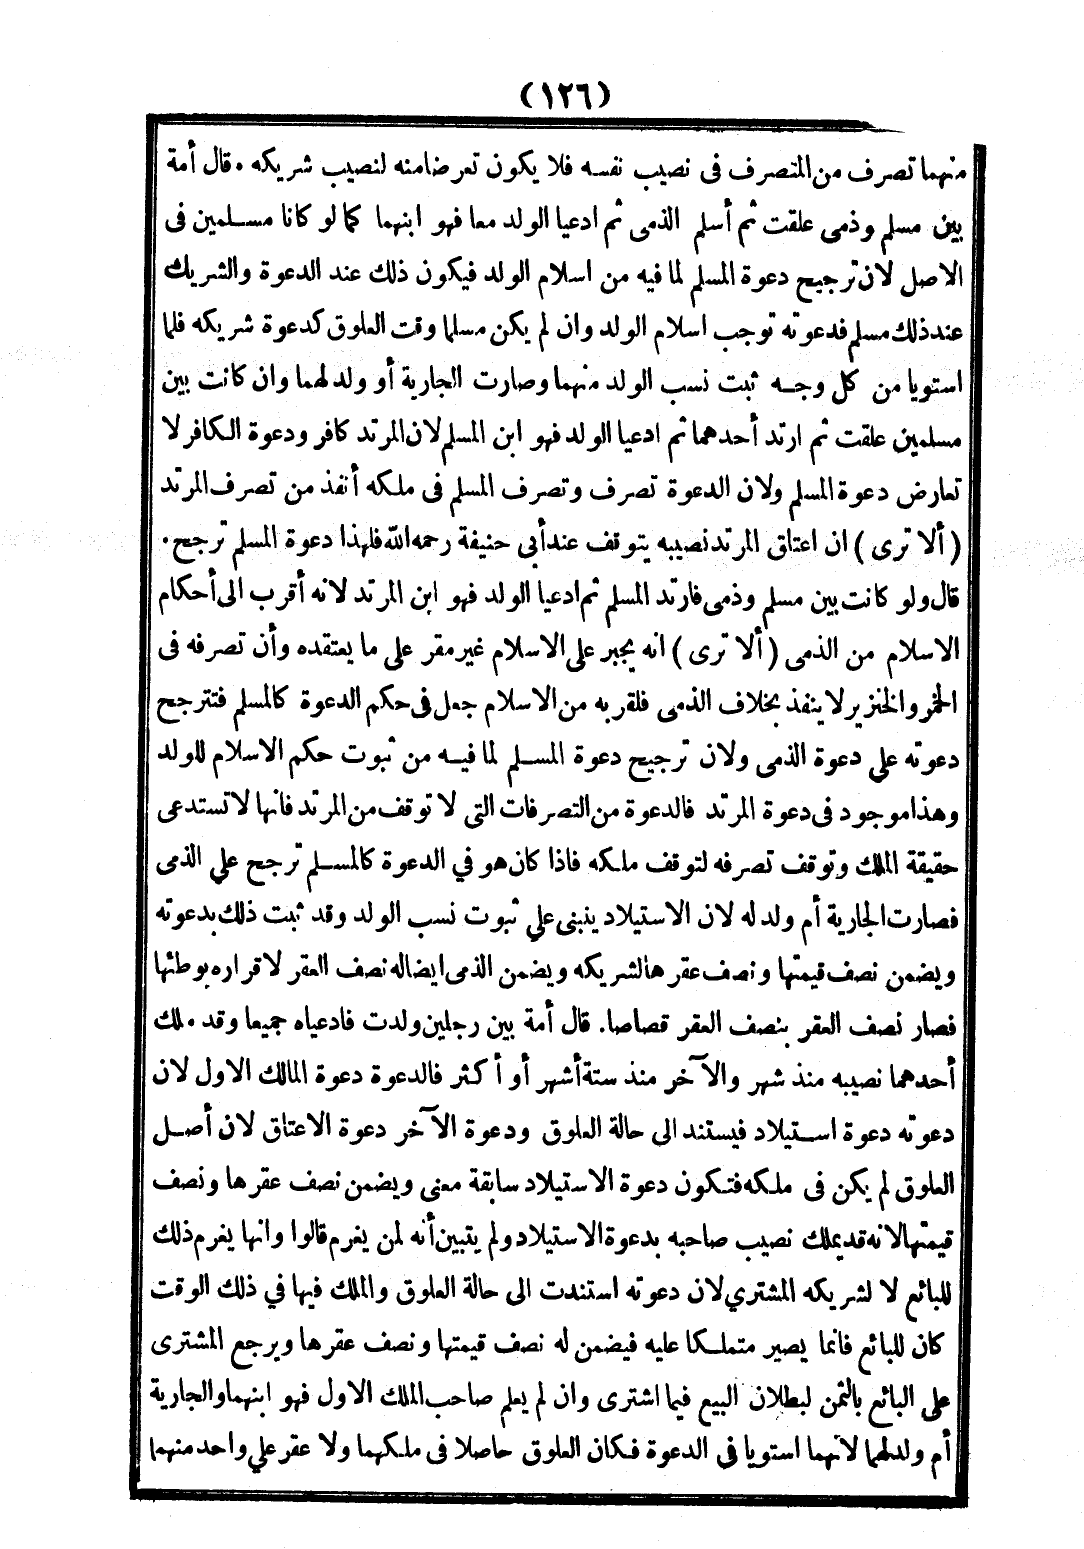 (١٢٦)
منهما تصرف من المتصرف فى نصيب نفسه فلا يكون تعرضا منه لنصيب شريكه . قال أمة
بين مسلم وذمى علقت ثم أسلم الذمى ثم ادعيا الولد معا فهو ابنهما كما لو كانا مسلمين فى
الاصل لان ترجيح دعوة المسلم لما فيه من اسلام الولد فيكون ذلك عند الدعوة والشريك
عند ذلك مسلم فدعوته توجب اسلام الولد وان لم يكن مسلما وقت العلوق كدعوة شريكه فلما
استويا من كل وجه ثبت نسب الولد منهما وصارت الجارية أو ولد لهما وان كانت بين
مسلمين علقت ثم ارتد أحدهما ثم ادعيا الولد فهو ابن المسلم لان المرتد كافر ودعوة الكافر لا
تعارض دعوة المسلم ولان الدعوة تصرف وتصرف المسلم فى ملكه أنفذ من تصرف المرتد
(ألا ترى) ان اعتاق المرتد نصيبه يتوقف عند أبى حنيفة رحمه الله فلهذا دعوة المسلم ترجح .
قال ولو كانت بين مسلم وذمى فارتد المسلم ثم ادعيا الولد فهو ابن المرتد لانه أقرب الى أحكام
الاسلام من الذمى (ألا ترى) انه يجبر على الاسلام غير مقر على ما يعتقده وأن تصرفه فى
الخمر والخنزير لا ينفذ بخلاف الذمى فلقربه من الاسلام جعل فى حكم الدعوة كالمسلم فتترجح
دعوته علي دعوة الذمى ولان ترجيح دعوة المسلم لما فيه من ثبوت حكم الاسلام للولد
وهذا موجود فى دعوة المرتد فالدعوة من التصرفات التى لا توقف من المرتد فانها لا تستدعى
حقيقة الملك وتوقف تصرفه لتوقف ملكه فاذا كان هو في الدعوة كالمسلم ترجح علي الذمى
فصارت الجارية أم ولد له لان الاستيلاد ينبنى علي ثبوت نسب الولد وقد ثبت ذلك بدعوته
ويضمن نصف قيمتها ونصف عقرها لشريكه ويضمن الذمى ايضا له نصف العقر لاقراره بوطئها
فصار نصف العقر بنصف العقر قصاصا. قال أمة بين رجلين ولدت فادعياه جميعا وقد ملك
أحدهما نصيبه منذ شهر والآخر منذ ستة أشهر أو أكثر فالدعوة دعوة المالك الاول لان
دعوته دعوة استيلاد فيستند الى حالة العلوق ودعوة الآخر دعوة الاعتاق لان أصل
العلوق لم يكن فى ملكه فتكون دعوة الاستيلاد سابقة معنى ويضمن نصف عقرها ونصف
قيمتها لانه قد يملك نصيب صاحبه بدعوة الاستيلاد ولم يتبين أنه لمن يغرم قالوا وانها يغرم ذلك
للبائع لا لشريكه المشتري لان دعوته استندت الى حالة العلوق والملك فيها في ذلك الوقت
كان للبائع فانما يصير متملكا عليه فيضمن له نصف قيمتها ونصف عقرها ويرجع المشترى
على البائع بالثمن لبطلان البيع فيما اشترى وان لم يعلم صاحب الملك الاول فهو ابنهما والجارية
أم ولد لهما لانهما استويا فى الدعوة فكان العلوق حاصلا فى ملكهما ولا عقر علي واحد منهما